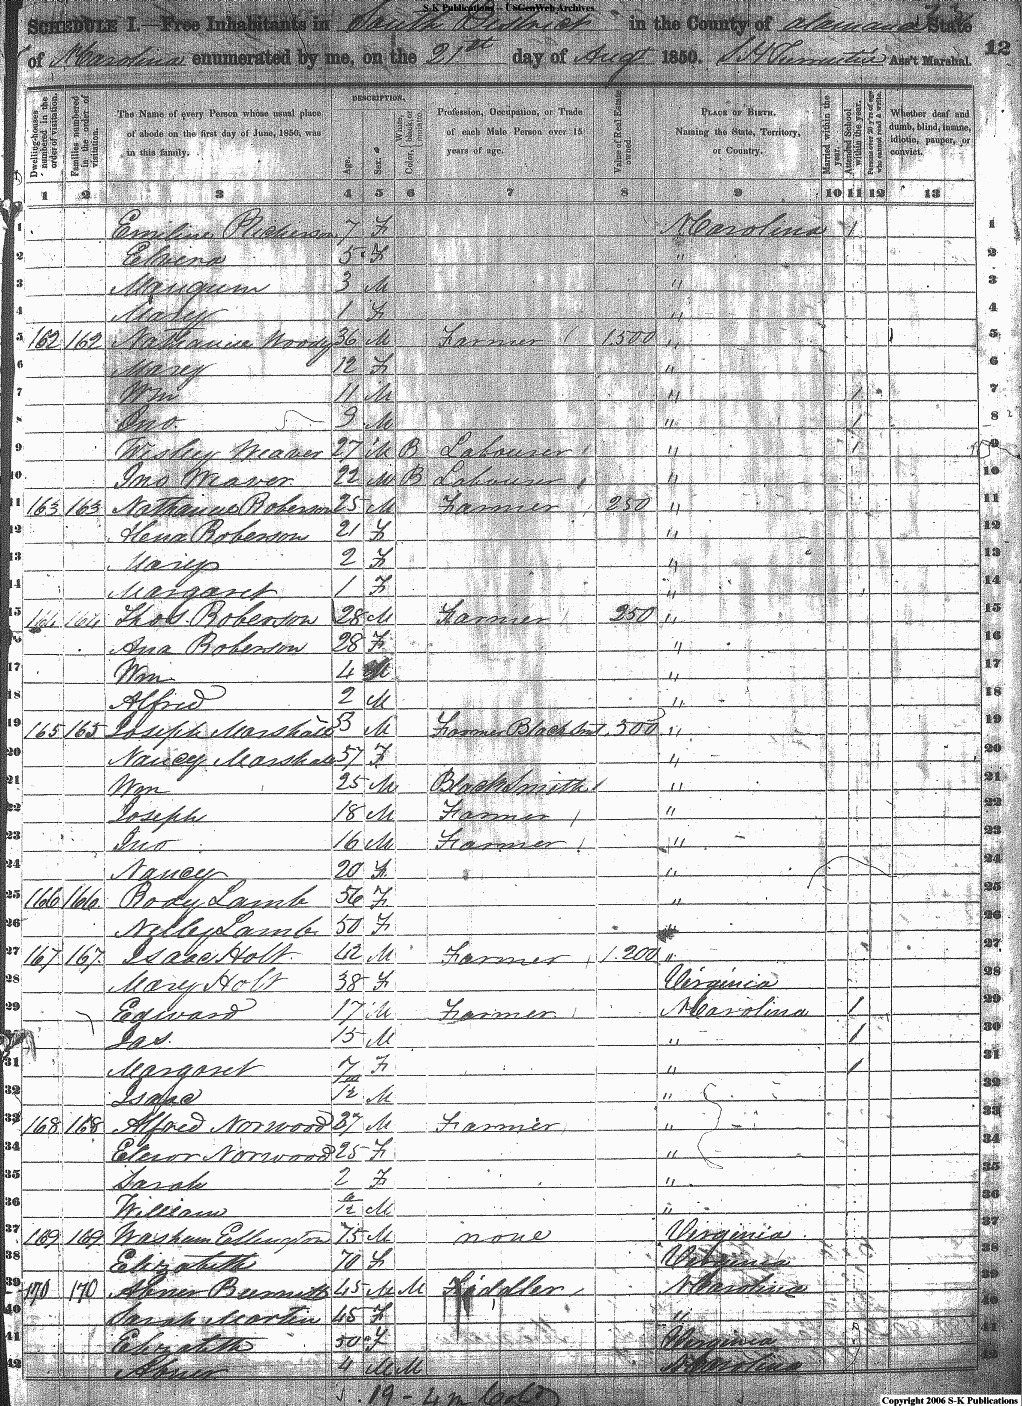 S-K Publications - USGenWeb Archives
SCHEDULE I.—Free Inhabitants in South District in the County of Alamance State
of N Carolina enumerated by me, on the 21st day of Augt 1850. Ass't Marshal. 12
Dwelling-houses numbered in the order of visitation.
Families numbered in the order of visitation.
The Name of every Person whose usual place of abode on the first day of June, 1850, was in this family.
DESCRIPTION.
Age.
Sex.
Color, White, black, or mulatto.
Profession, Occupation, or Trade of each Male Person over 15 years of age.
Value of Real Estate owned.
PLACE OF BIRTH. Naming the State, Territory, or Country.
Married within the year.
Attended School within the year.
Persons over 20 y'rs of age who cannot read & write.
Whether deaf and dumb, blind, insane, idiotic, pauper, or convict.
1 2 3 4 5 6 7 8 9 10 11 12 13
1 Emiline 7 F N Carolina 1 1
2 Elvira 5 F " 2
3 Mangum 3 M " 3
4 Mary 1 F " 4
5 162 162 Nathaniel Woody 36 M Farmer 1500 " 5
6 Mary 12 F " 6
7 Wm 11 M " 1 7
8 Jno 9 M " 1 8
9 Wesley Weaver 27 M B Labourer " 9
10 Jno Weaver 22 M B Labourer " 10
11 163 163 Nathaniel Roberson 25 M Farmer 250 " 11
12 Roberson 21 F " 12
13 Mary 2 F " 13
14 Margaret 1 F " 14
15 164 164 Thos. Roberson 28 M Farmer 250 " 15
16 Ana Roberson 28 F " 16
17 Wm 4 M " 17
18 Alfred 2 M " 18
19 165 165 Joseph Marshall 53 M Farmer Blacksmt 300 " 19
20 Nancy Marshall 57 F " 20
21 Wm 25 M BlackSmith " 21
22 Joseph 18 M Farmer " 22
23 Jno 16 M Farmer " 23
24 Nancy 20 F " 24
25 166 166 Lamb 56 F " 25
26 Nelly Lamb 50 F " 26
27 167 167 Isaac Holt 42 M Farmer 1.200 " 27
28 Mary Holt 38 F Virginia 28
29 Edward 17 M Farmer N Carolina 1 29
30 Jas. 15 M " 1 30
31 Margaret 7 F " 1 31
32 Isaac M " 32
33 168 168 Alfred Norwood 27 M Farmer " 33
34 Norwood 25 F " 34
35 Sarah 2 F " 35
36 William M " 36
37 169 169 Ellington 75 M none Virginia 37
38 Elizabeth 70 F Virginia 38
39 170 170 Abner Burnett 45 M M Fiddler N Carolina 39
40 Sarah Martin 45 F " 40
41 Elizabeth 50 F Virginia 41
42 Abner 4 M M N Carolina 42
19 - 4 m
Copyright 2006 S-K Publications